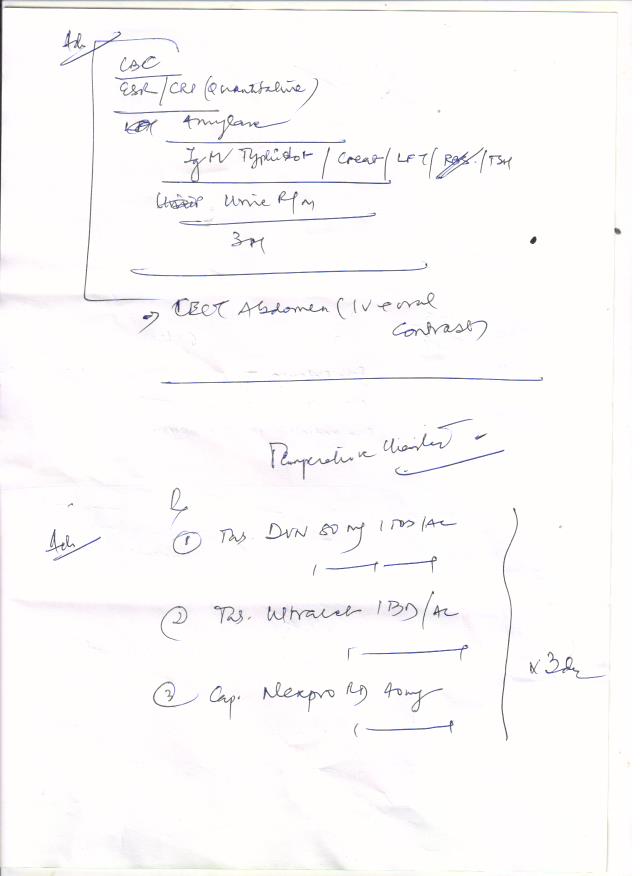 Adv
CBC
ESR/CRP (Quantitative)
Amylase
IgM Typhidot / Creat / LFT / RBS / TSH
Urine R/M
CECT Abdomen (IV & oral
contrast)
Temperature Charted
Rx
Adv
① Tab. DVN 80 mg 1 TDS/AC
② Tab. Ultracet 1 BD/AC
③ Cap. Nexpro RD 40mg
x 3day